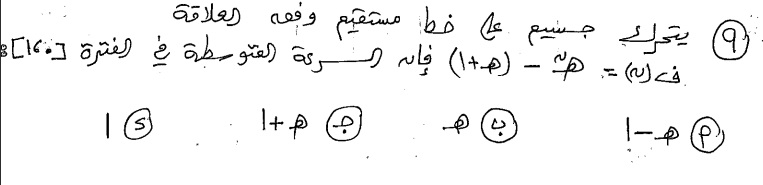 ٩ يتحرك جسيم على خط مستقيم وفقه العلاقة
ف(ن) = هـ^ن − (هـ+١) فإن السرعة المتوسطة في الفترة [١،٠]:
م هـ−١ ب هـ ج هـ+١ د ١